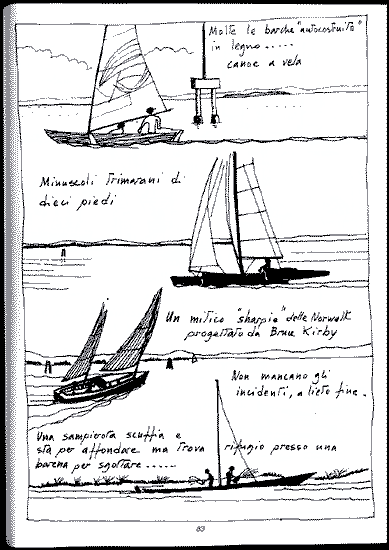 Molte le barche "autocostruite"
in legno.....
canoe a vela
Minuscoli Trimarani di
dieci piedi
Un mitico "sharpie" delle Norwalk
progettato da Bruce Kirby
Non mancano gli
incidenti, a lieto fine.
Una sampierota scuffia e
sta per affondare ma trova rifugio presso una
barena per sgottare......
89